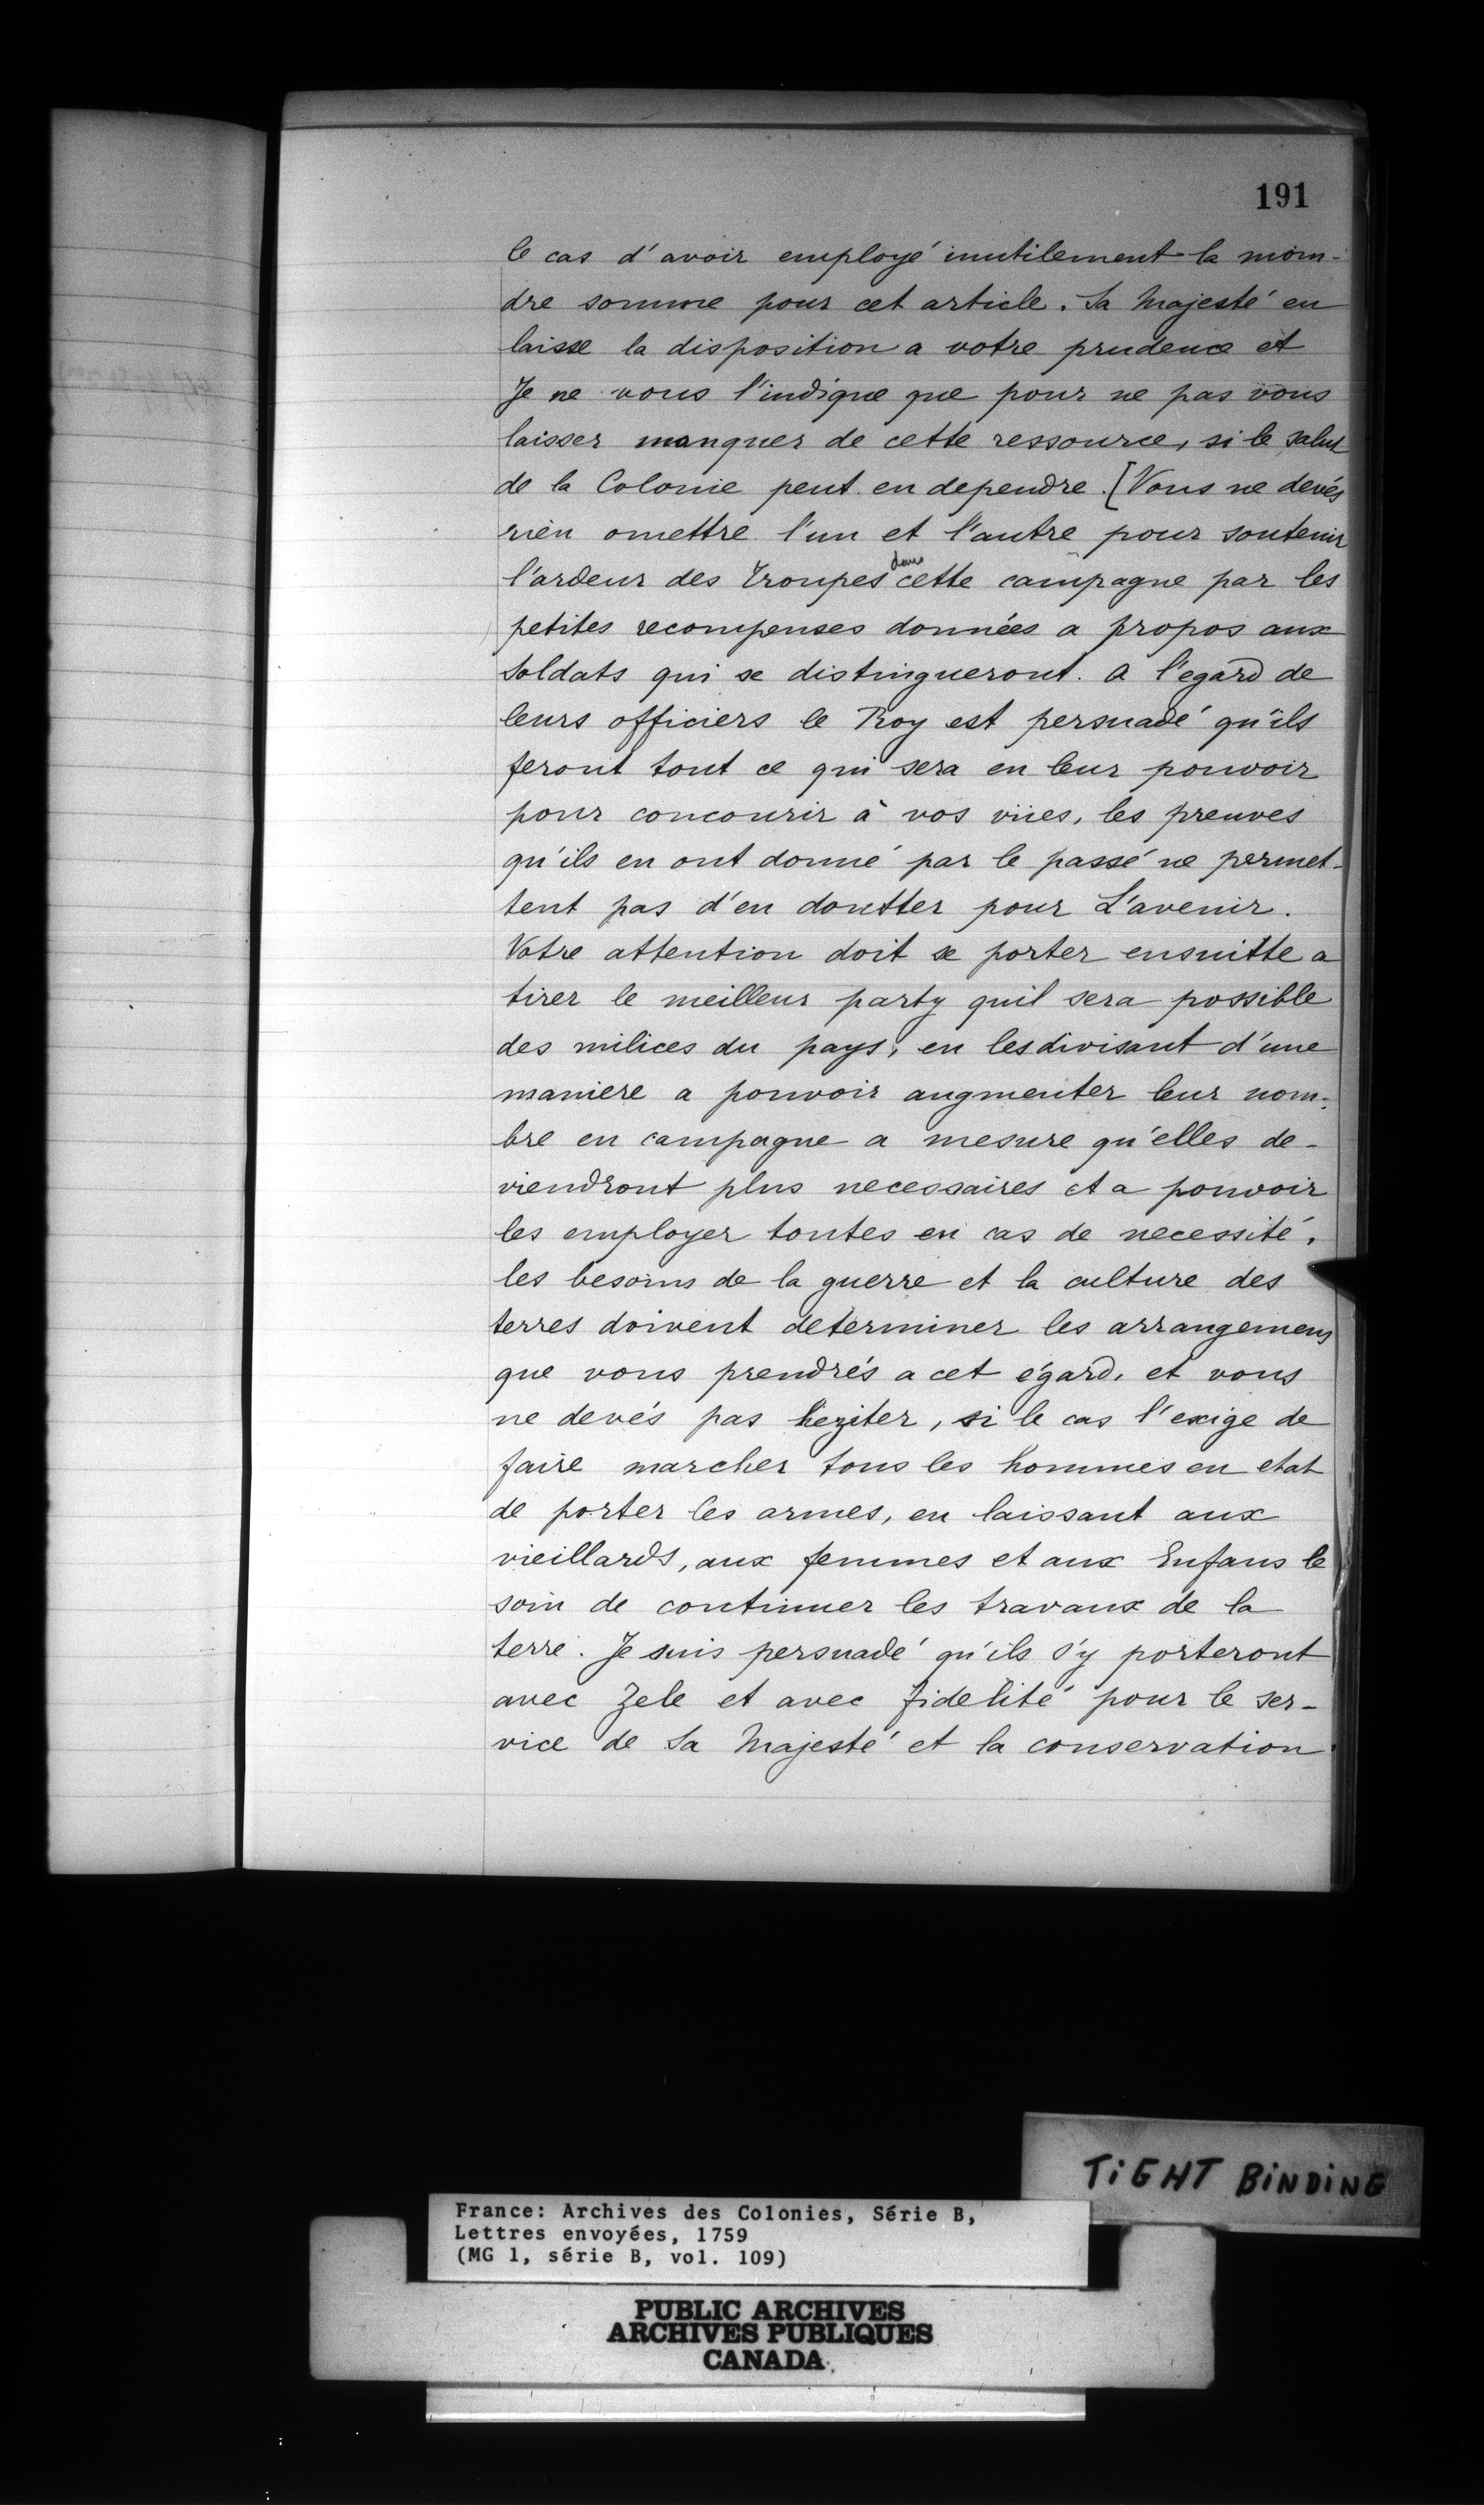 191
le cas d'avoir employé inutilement la moin-
dre somme pour cet article. Sa Majesté en
laisse la disposition a votre prudence et
Je ne vous l'indique que pour ne pas vous
laisser manquer de cette ressource, si le salut
de la Colonie peut en dependre. [Vous ne devés
rien omettre l'un et l'autre pour soutenir
l'ardeur des Troupes dans cette campagne par les
petites recompenses données a propos aux
soldats qui se distingueront. A l'egard de
leurs officiers le Roy est persuadé qu'ils
feront tout ce qui sera en leur pouvoir
pour concourir à vos vües, les preuves
qu'ils en ont donné par le passé ne permet-
tent pas d'en doutter pour L'avenir.
Votre attention doit se porter ensuitte a
tirer le meilleur party quil sera possible
des milices du pays, en les divisant d'une
maniere a pouvoir augmenter leur nom-
bre en campagne a mesure qu'elles de-
viendront plus necessaires et a pouvoir
les employer toutes en cas de necessité,
les besoins de la guerre et la culture des
terres doivent determiner les arrangemens
que vous prendrés a cet égard, et vous
ne devés pas héziter, si le cas l'exige de
faire marcher tous les hommes en etat
de porter les armes, en laissant aux
vieillards, aux femmes et aux Enfans le
soin de continuer les travaux de la
terre. Je suis persuadé qu'ils s'y porteront
avec Zele et avec fidelité pour le ser-
vice de Sa Majesté et la conservation
TiGHT BiNDiNG
France: Archives des Colonies, Série B,
Lettres envoyées, 1759
(MG 1, série B, vol. 109)
PUBLIC ARCHIVES
ARCHIVES PUBLIQUES
CANADA